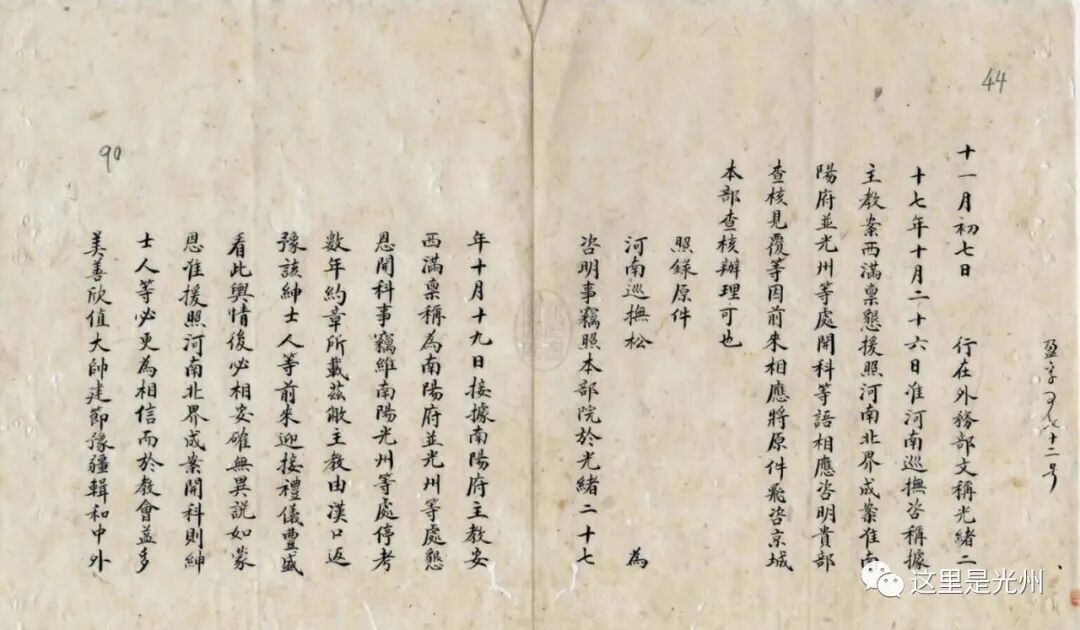 44
盈字
十二号
十一月初七日 行在外務部文稱光緒二
十七年十月二十六日准河南巡撫咨稱據
主教案西滿稟懇援照河南北界成案准南
陽府並光州等處開科等語相應咨明貴部
查核見覆等因前來相應將原件飛咨京城
本部查核辦理可也
照錄原件
河南巡撫松 為
咨明事竊照本部院於光緒二十七
年十月十九日接據南陽府主教安
西滿稟稱為南陽府並光州等處懇
恩開科事竊維南陽光州等處停考
數年約章所載茲敝主教由漢口返
豫該紳士人等前來迎接禮儀豊盛
看此輿情後必相安確無異說如蒙
恩准援照河南北界成案開科則紳
士人等必更為相信而於教會益多
美善欣值大帥建節豫疆輯和中外
90
这里是光州